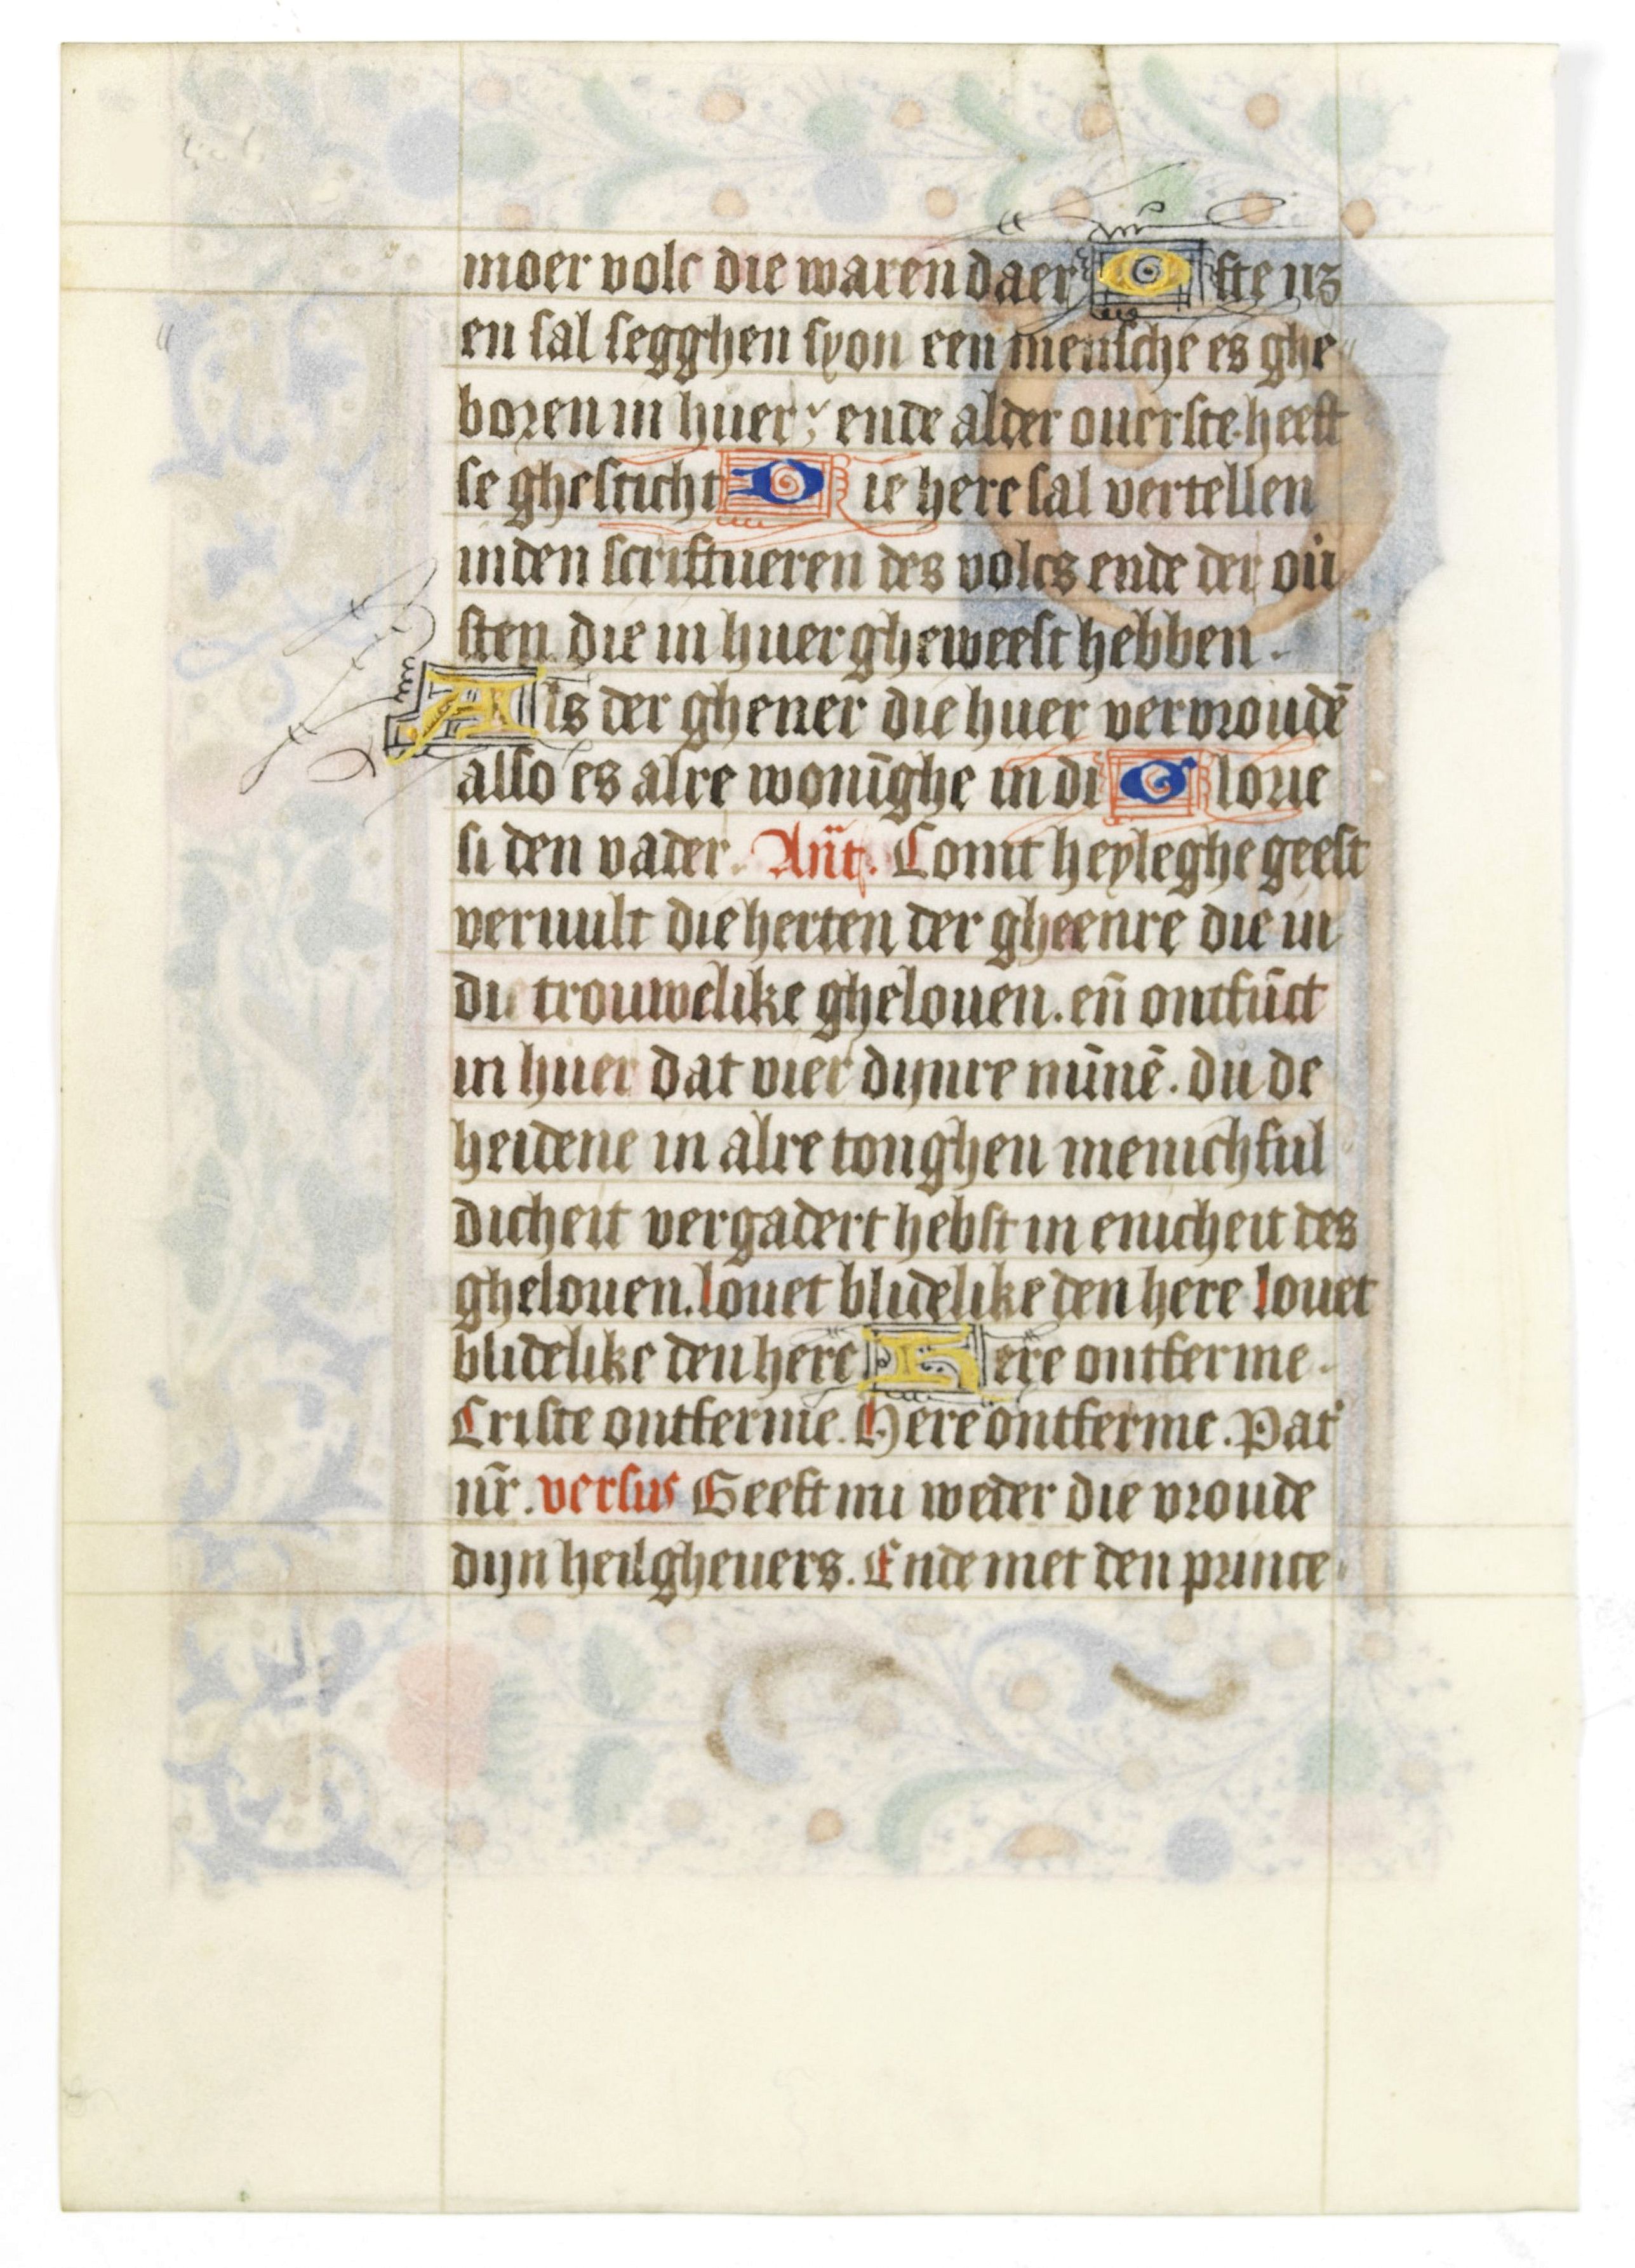 moer volc die waren daer Ofte uz
en sal segghen syon een mensche es ghe
boren in huer; ende alder ouerste heeft
se ghesticht Die here sal vertellen
inden scriftueren des volcs ende der ou̇
sten die in huer gheweest hebben.
Als der ghener die huer vervroudē
also es alre wonīghe in di Glorie
si den vader. Ant̄. Comt heyleghe geest
veruult die herten der gheenre die in
di trouwelike ghelouen. en̄ ontfūct
in huer dat vier dijnre mīnē. du de
heidene in alre tonghen menichful
dicheit vergadert hebst in enicheit des
ghelouen. louet blidelike den here louet
blidelike den here Here ontferme.
Criste ontferme. Here ontferme. Pat᷑
nr̄. versus Geeft mi weder die vroude
dijn heilgheuers. Ende met den prince